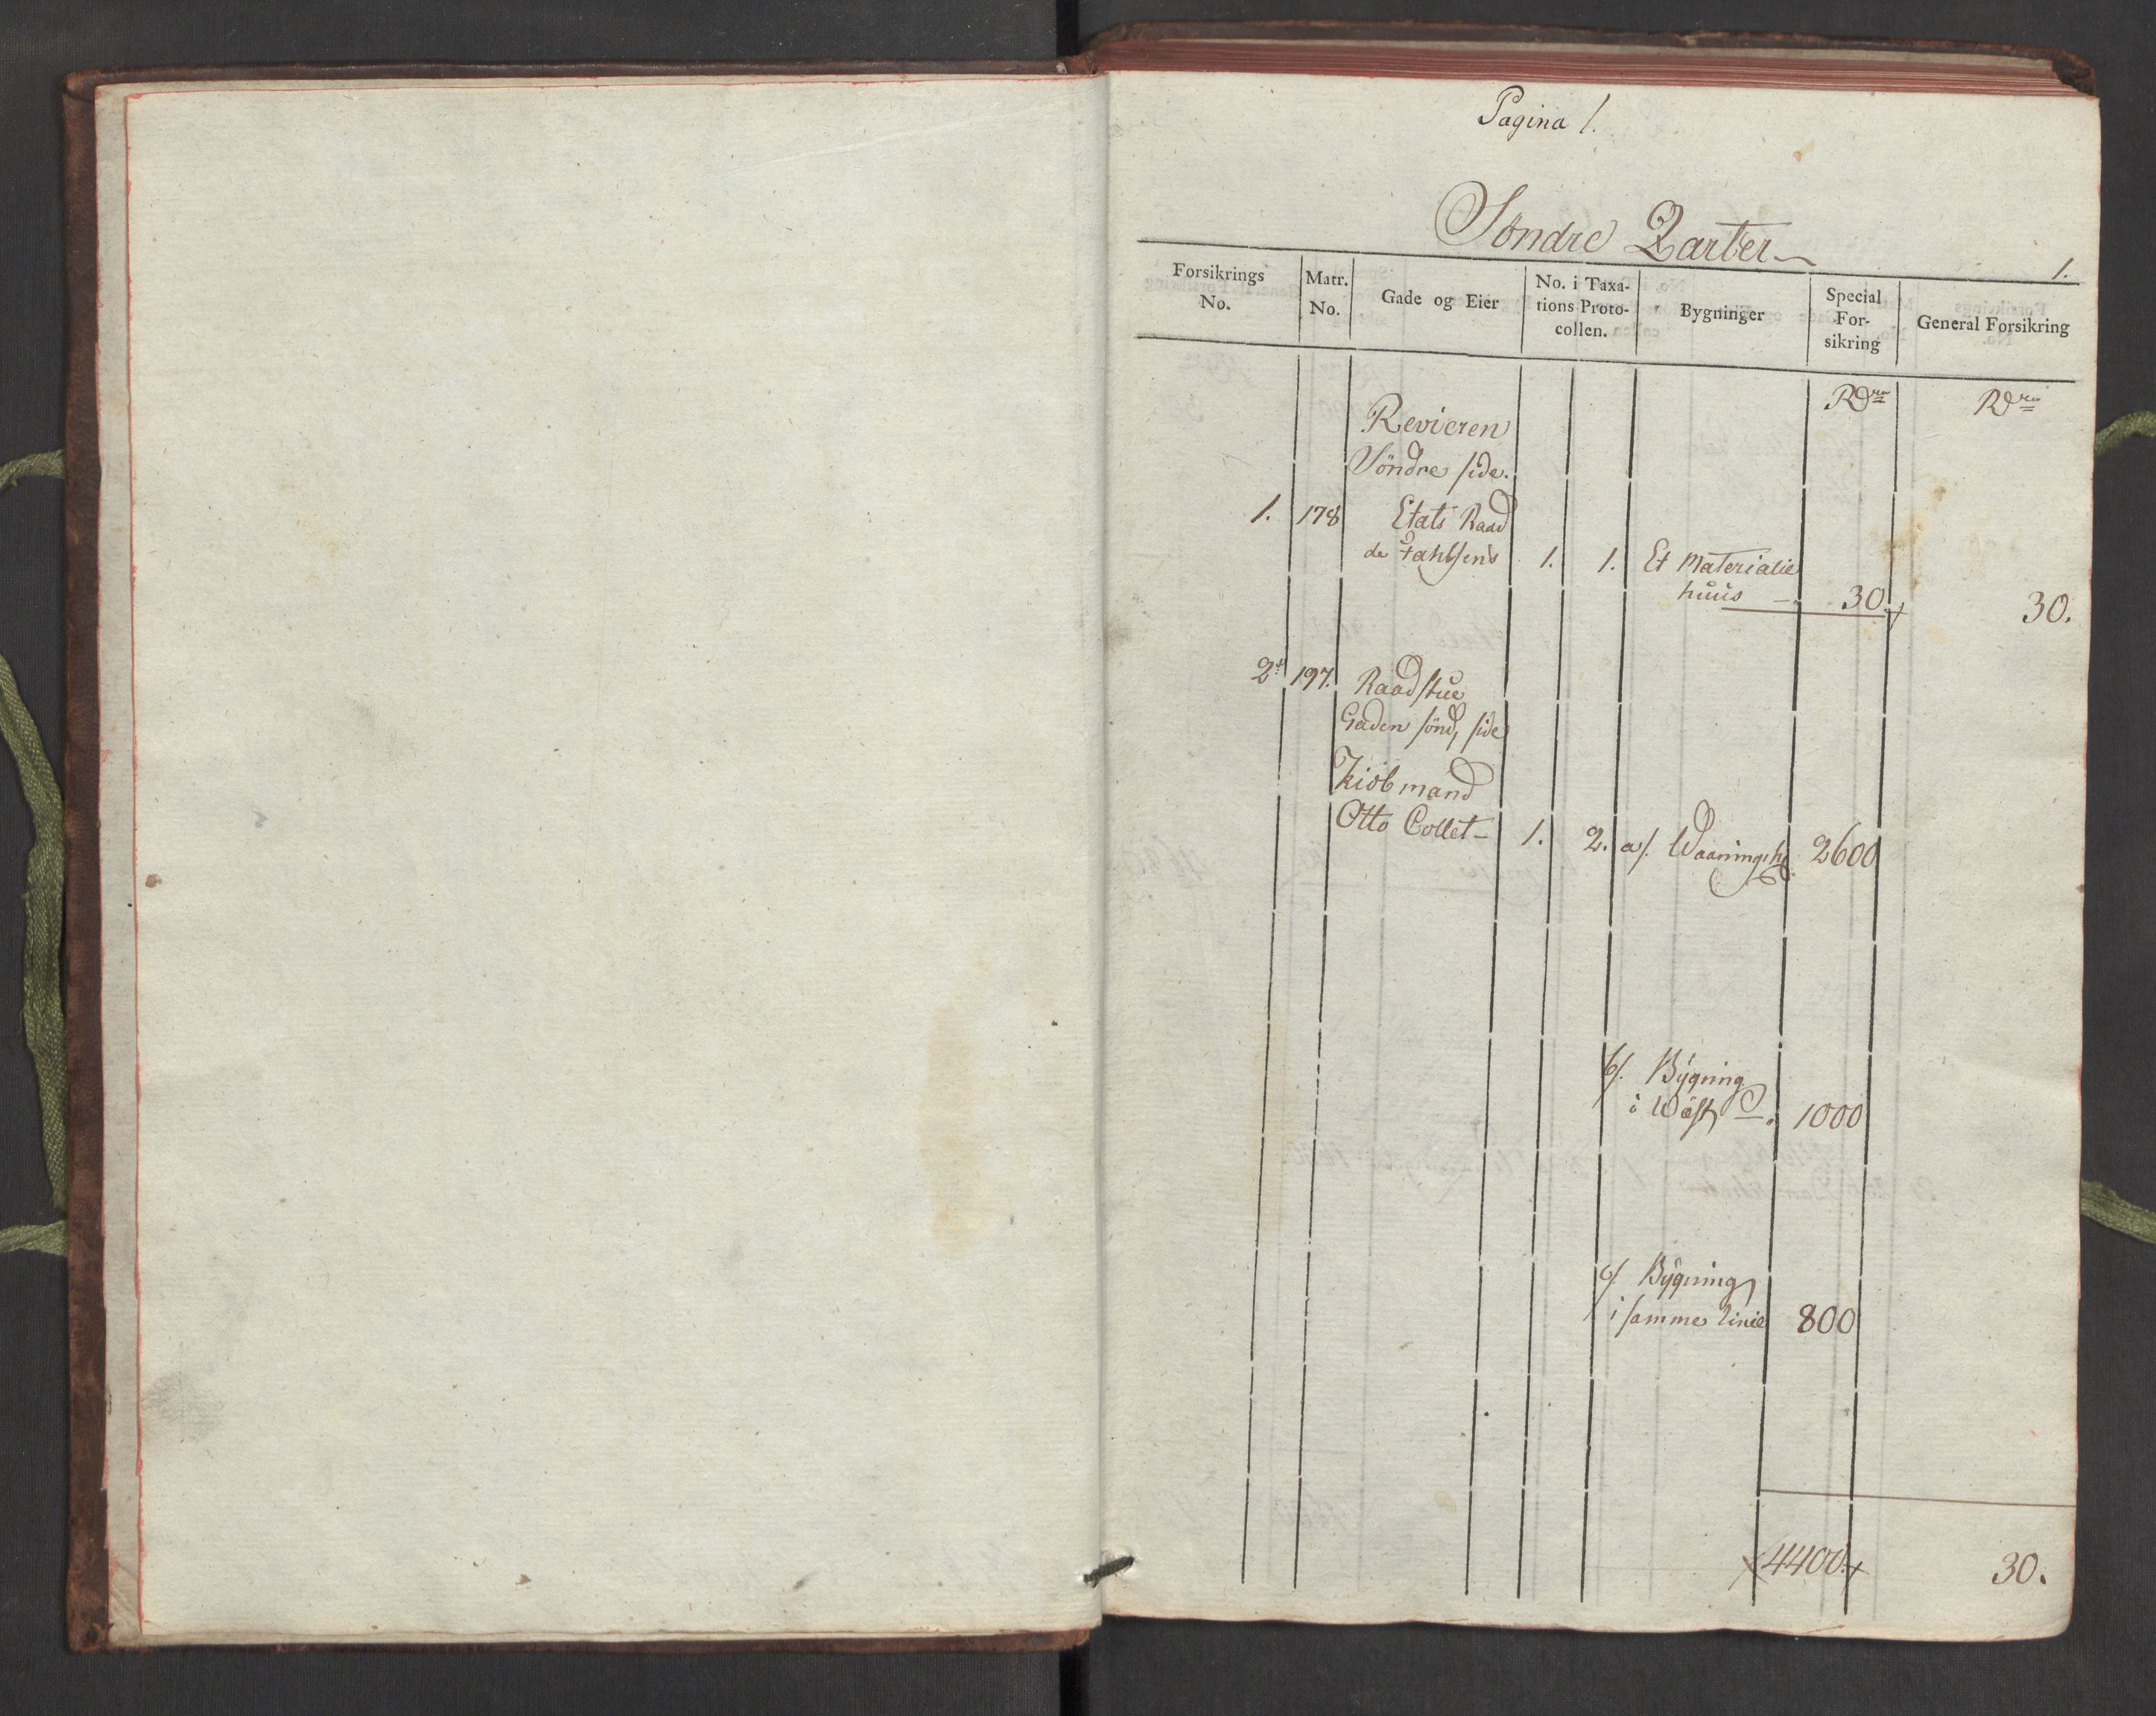 Pagina 1.
Söndre Qvarter
1.
Forsikrings No.
Matr. No.
Gade og Eier
No. i Taxa-
tions Proto-
collen.
Bygninger
Special
For-
sikring
General Forsikring
Rdr
Rdr
Revieren
Söndre side.
1. 178 Etats Raad
de 1. 1. Et Materialie
huus 30. 30.
2 197. Raadstue
Gaden sönd, side
Kiöbmand
Otto Collet 1. 2. a/. Waaningsh. 2600
b/. Bygning
i Wæst 1000
c/. Bygning
i samme linie 800
4400. 30.